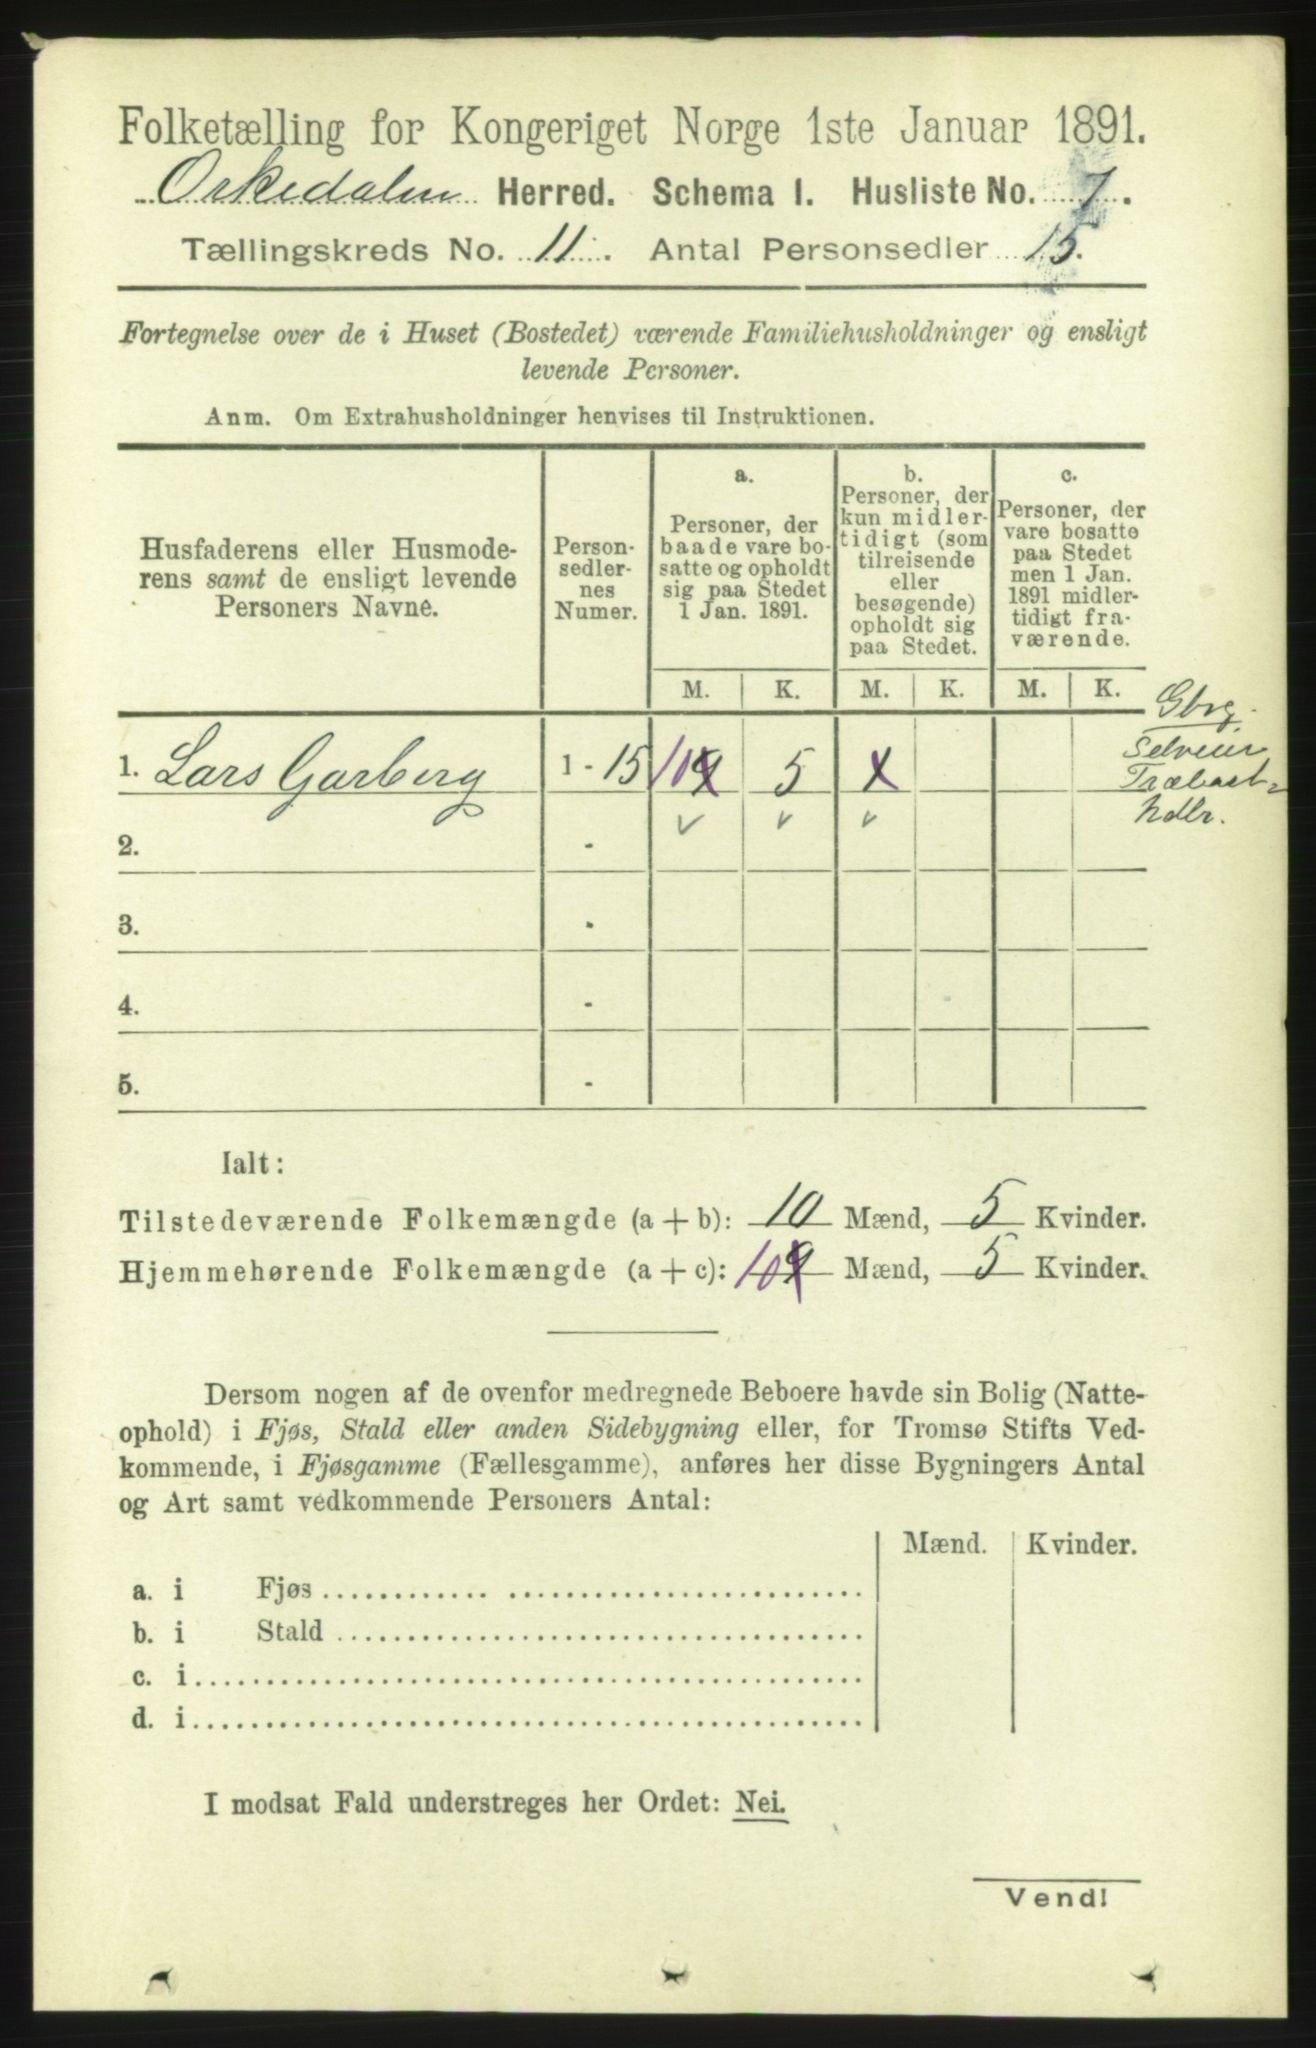 Folketælling for Kongeriget Norge 1ste Januar 1891.
Orkedalen Herred. Schema I. Husliste No. 7.
Tællingskreds No. 11. Antal Personsedler 15.
Fortegnelse over de i Huset (Bostedet) værende Familiehusholdninger og ensligt
levende Personer.
Anm. Om Extrahusholdninger henvises til Instruktionen.
Husfaderens eller Husmode-
rens samt de ensligt levende
Personers Navne.
Person-
sedler-
nes
Numer.
a.
Personer, der
baade vare bo-
satte og opholdt
sig paa Stedet
1 Jan. 1891.
b.
Personer, der
kun midler-
tidigt (som
tilreisende
eller
besøgende)
opholdt sig
paa Stedet.
c.
Personer, der
vare bosatte
paa Stedet
men 1 Jan.
1891 midler-
tidigt fra-
værende.
M. K. M. K. M. K.
Gbrg.
Selveier
Trælast-
hdlr.
1. Lars Garberg 1 - 15 10 9 5
2. -
3. -
4. -
5. -
Ialt:
Tilstedeværende Folkemængde (a + b): 10 Mænd, 5 Kvinder.
Hjemmehørende Folkemængde (a + c): 10 9 Mænd, 5 Kvinder.
Dersom nogen af de ovenfor medregnede Beboere havde sin Bolig (Natte-
ophold) i Fjøs, Stald eller anden Sidebygning eller, for Tromsø Stifts Ved-
kommende, i Fjøsgamme (Fællesgamme), anføres her disse Bygningers Antal
og Art samt vedkommende Personers Antal:
Mænd. Kvinder.
a. i Fjøs
b. i Stald
c. i
d. i
I modsat Fald understreges her Ordet: Nei.
Vend!